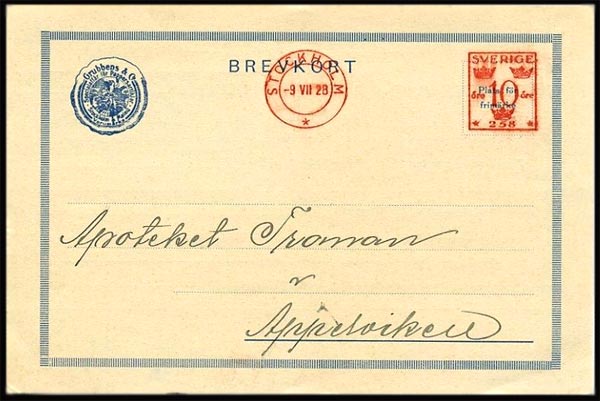 Grubbens & Co
BREVKORT
STOCKHOLM
-9 VII 28
SVERIGE
öre 10 öre
Plats för
frimärke
258
Apoteket Tranan
Appelviken